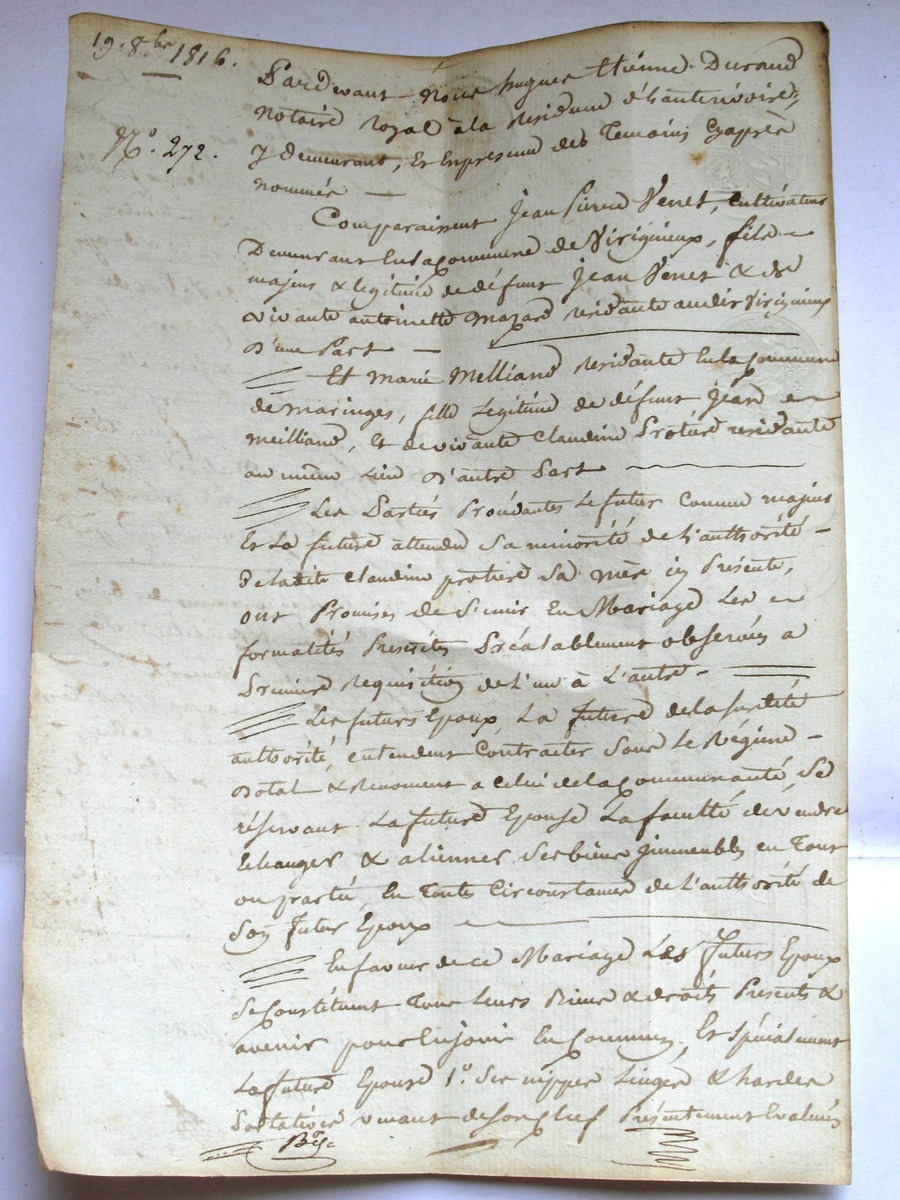 19. 8bre 1816.
Pardevant Nous hugues Etienne Durand
Notaire Royal à la Residence de Chantenevoire,
N°. 272.
y demeurant, et En presence des Temoins Cyaprès
nommés —
Comparaissent Jean Pierre Venet, cultivateur
Demeurant En la Commune de Virigneux, fils
majeur & legitime de défunt Jean Venet & de
vivante antoinette mazard residante audit Virigneux
d'une Part —
Et Marie Melliand residante En la Commune
de maringes, fille Legitime de défunt Jean
Meilliand, Et de vivante Claudine Protière residante
au même Lieu d'autre Part
Les Parties Procédantes Le futur Comme majeur
Et La future attendu Sa minorité de L'authorité
de ladite Claudine protiere sa mère icy Présente,
ont Promises de S'unir En Mariage Les
formalités Prescrites Préalablement observées a
Premiere Requisition de L'un à L'autre.
Les futurs Epoux, La future de la susdite
authorité, entendent Contracter Sous Le Régime
Dotal & Renoncent a Celui de la Communauté, Se
réservant La future Epouse La faculté de vendre
Echanger & alienner Ses biens immeubles en Tout
ou partie, En Toute Circonstance de L'authorité de
Son futur Epoux
En faveur de ce Mariage Les futurs Epoux
Se Constituent Tous Leurs Biens & droits Presents &
avenir pour En jouir En Commun, Et Spécialement
La future Epouse 1°. Ses nippes Linges & hardes
Portatives venant de Son Chef Présentement Evalués